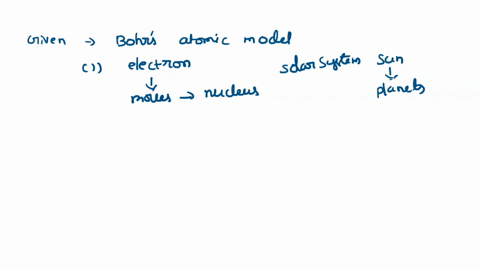 Given → Bohr's atomic model
(1) electron solar system sun
↓ ↓
moves → nucleus planets